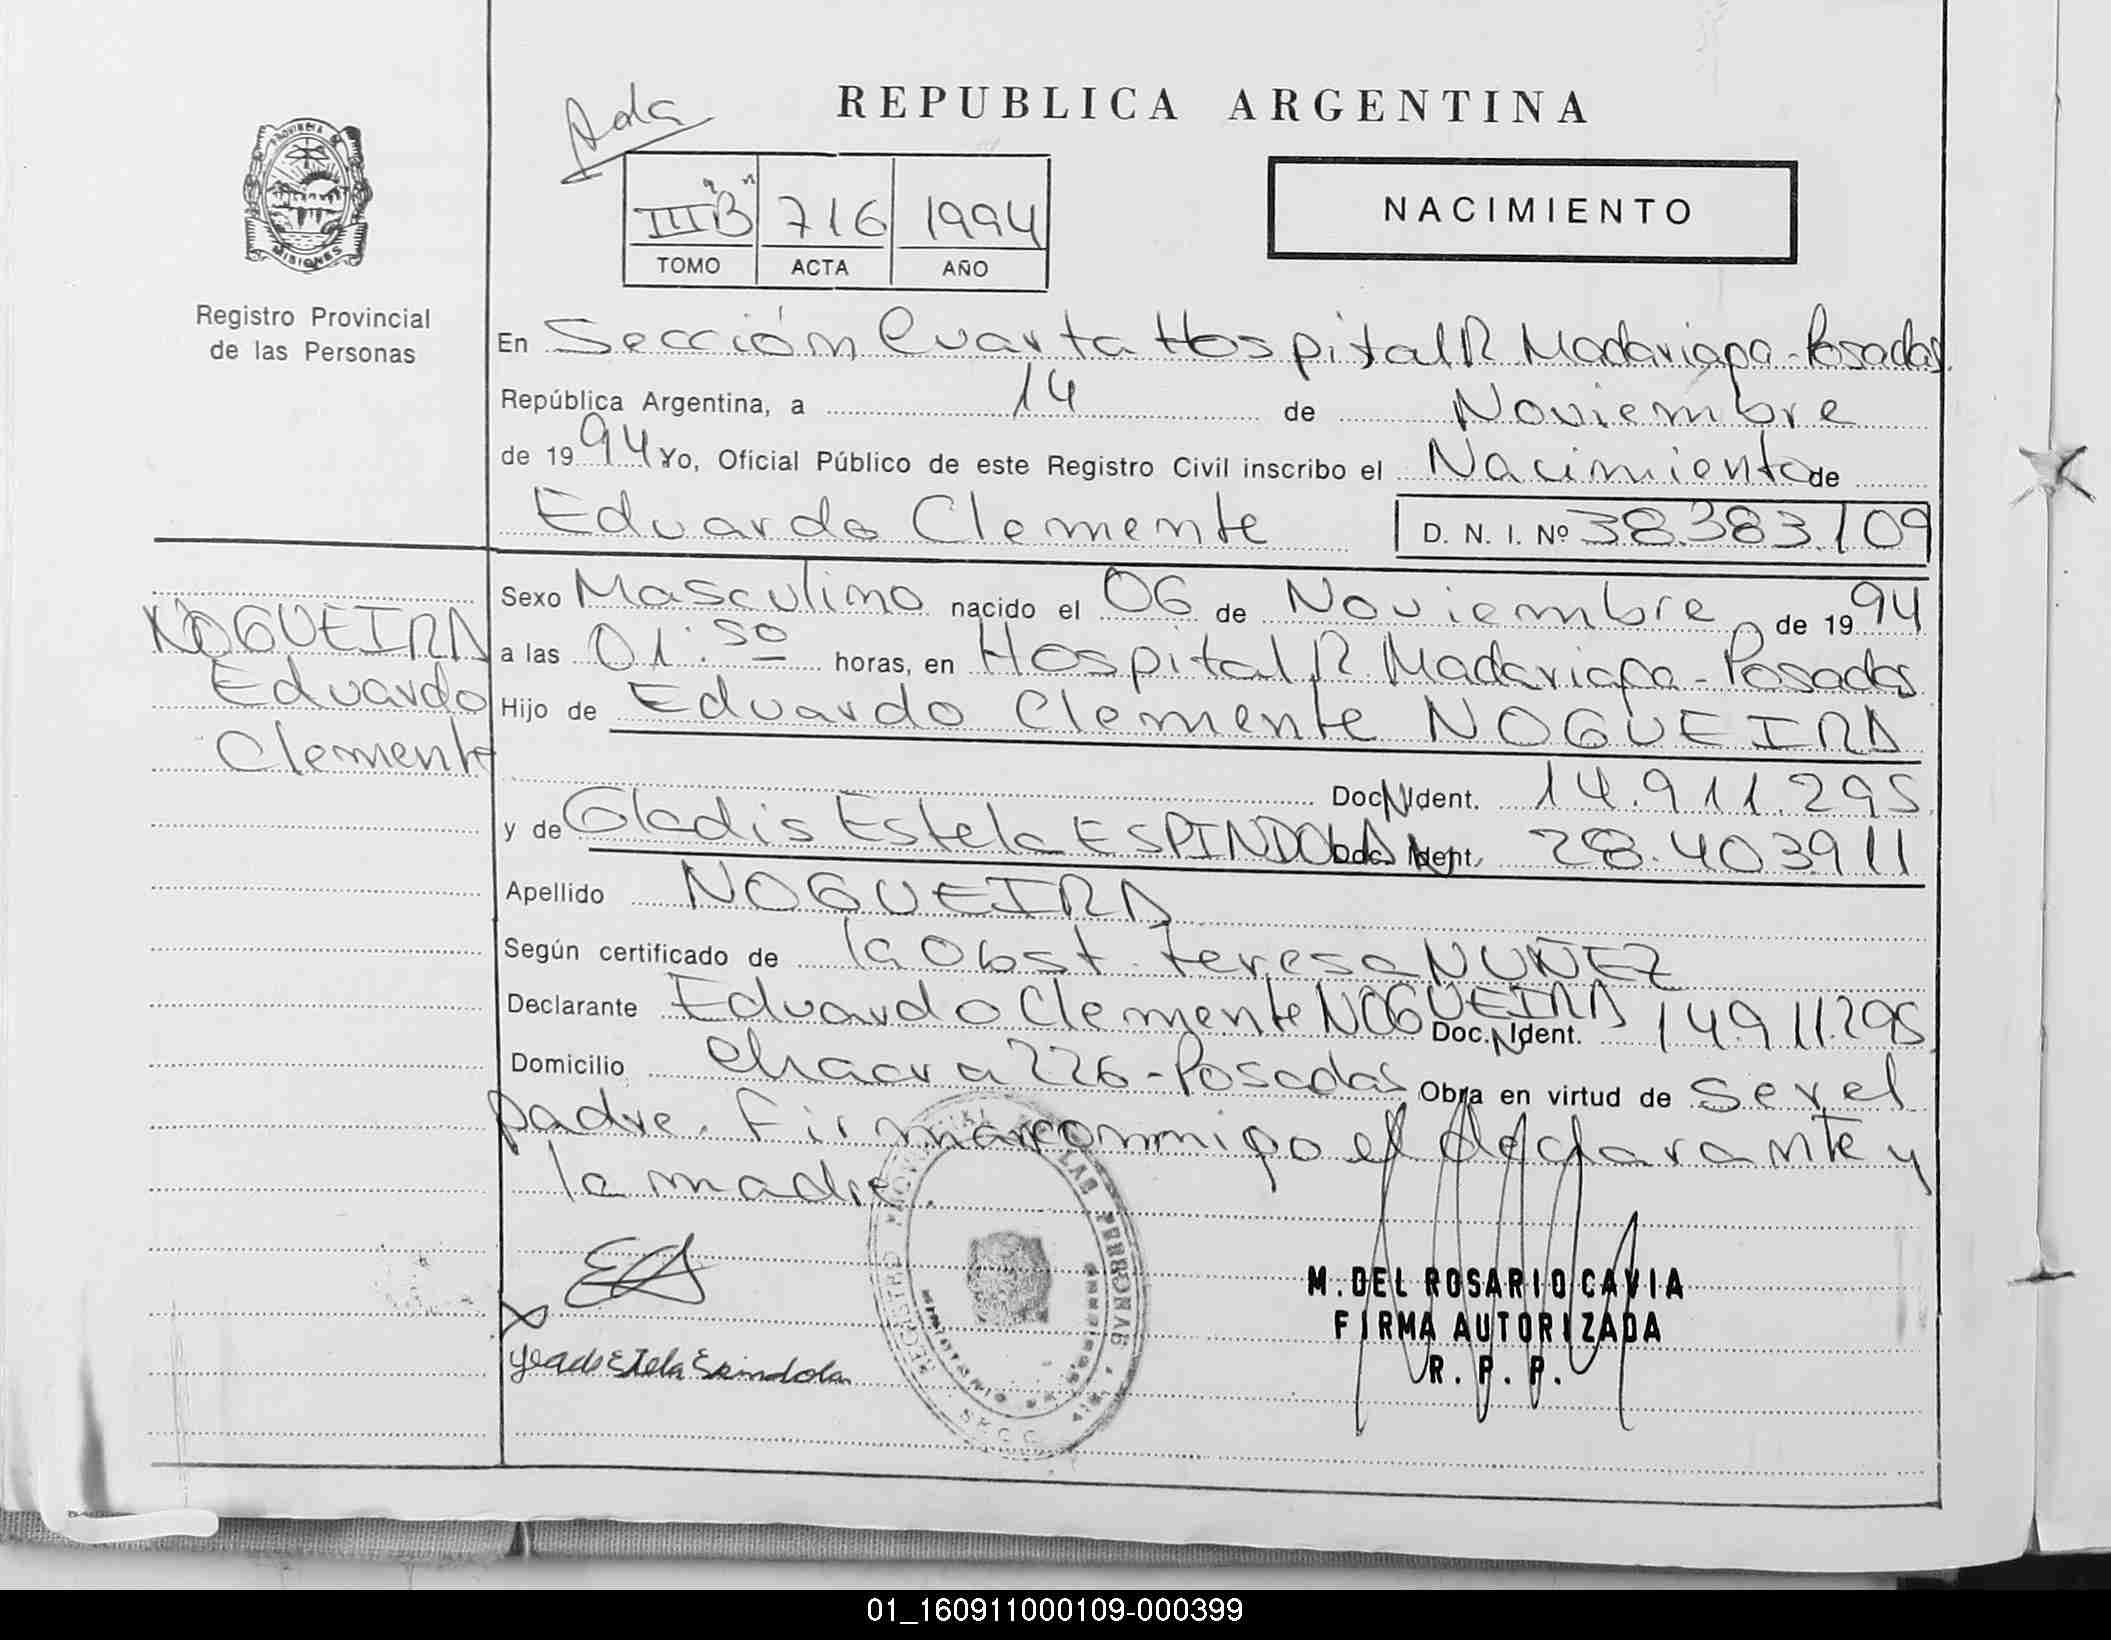 Ada
REPUBLICA ARGENTINA
IIIB 716 1994
TOMO ACTA AÑO
NACIMIENTO
PROVINCIA DE
MISIONES
Registro Provincial
de las Personas
En Sección Cuarta Hospital R Madariaga - Posadas
República Argentina, a 14 de Noviembre
de 1994 Yo, Oficial Público de este Registro Civil inscribo el Nacimiento de
Eduardo Clemente D. N. I. Nº 38.383.109
NOGUEIRA
Eduardo
Clemente
Sexo Masculino nacido el 06 de Noviembre de 1994
a las 01:50 horas, en Hospital R. Madariaga - Posadas
Hijo de Eduardo Clemente NOGUEIRA
Doc. N Ident. 14.911.295
y de Gladis Estela ESPINDOLA Doc. N Ident. 28.403911
Apellido NOGUEIRA
Según certificado de la Obst. teresa NUÑEZ
Declarante Eduardo Clemente NOGUEIRA Doc. N Ident. 14911.295
Domicilio chacra 226 - Posadas Obra en virtud de ser el
padre. Firman conmigo el declarante y
la madre.
M. DEL ROSARIO CAVIA
FIRMA AUTORIZADA
R. P. P.
Estela Espindola
01_160911000109-000399